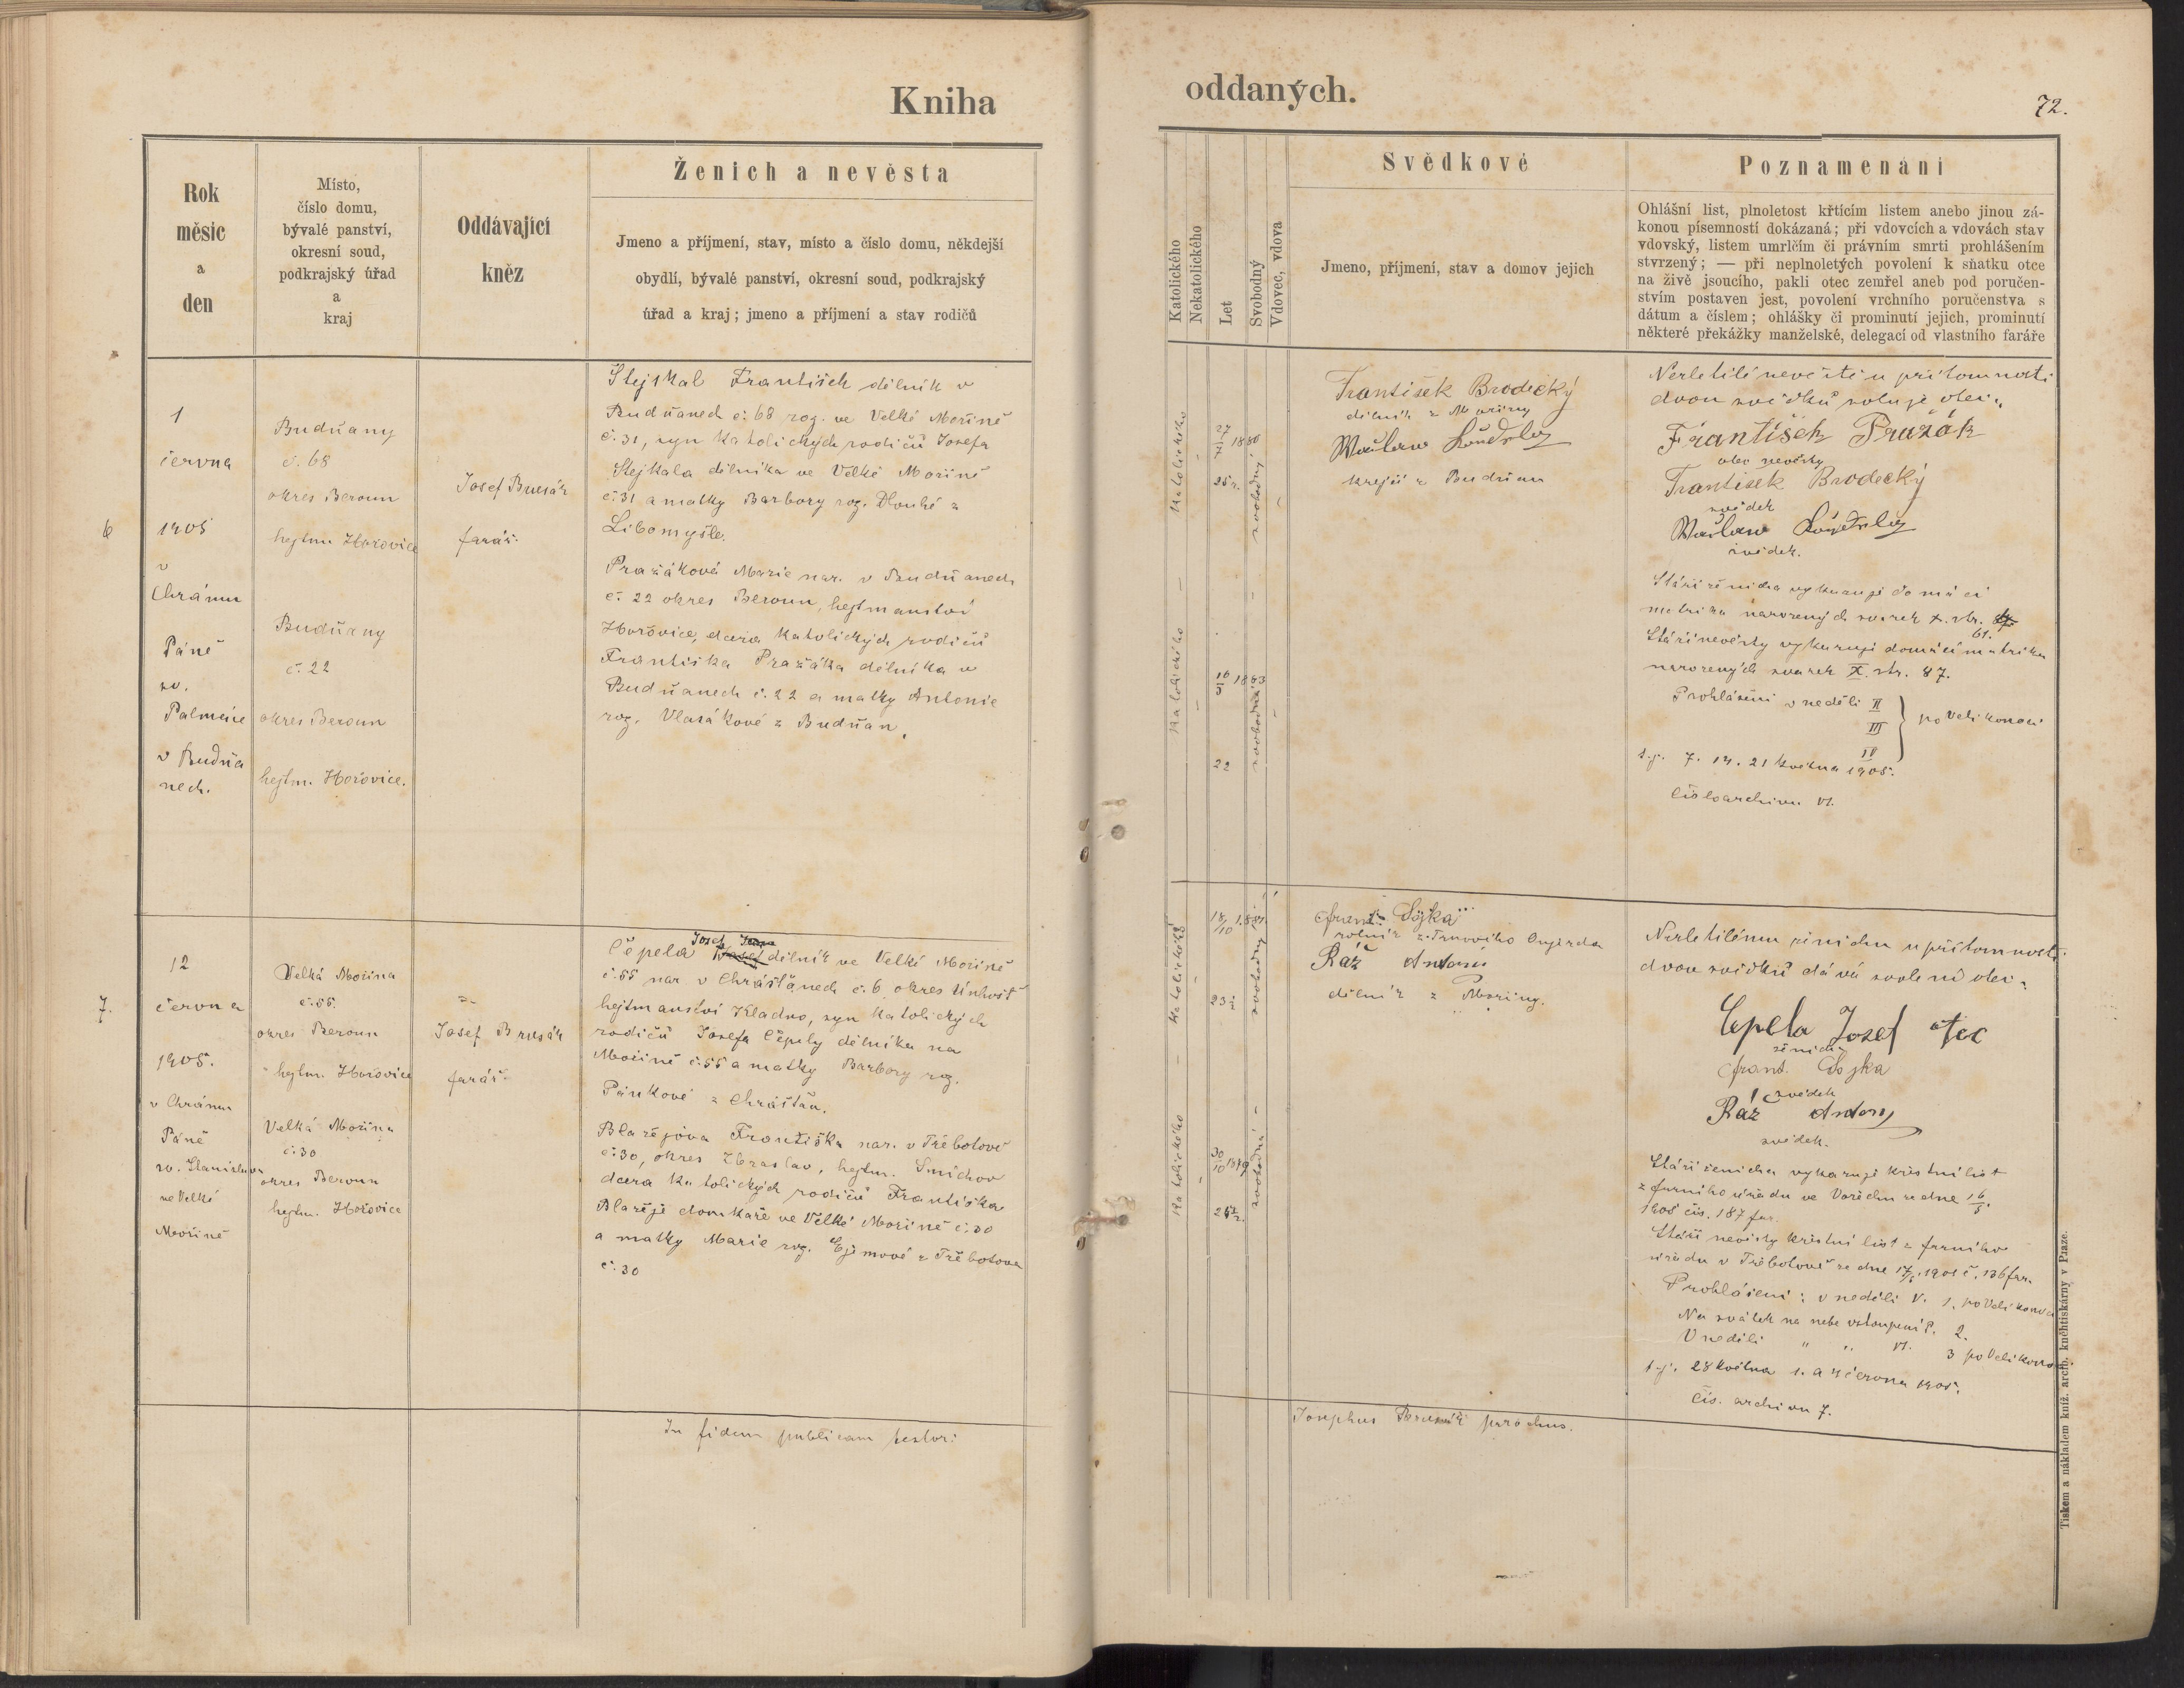 Kniha
oddaných.
72.
Rok
měsíc
a
den
Místo,
číslo domu,
bývalé panství,
okresní soud,
podkrajský úřad
a
kraj
Oddávající
kněz
Ženich a nevěsta
Jmeno a příjmení, stav, místo a číslo domu, někdejší
obydlí, bývalé panství, okresní soud, podkrajský
úřad a kraj; jmeno a příjmení a stav rodičů
Katolického
Nekatolického
Let
Svobodný
Vdovec, vdova
Svědkové
Jmeno, příjmení, stav a domov jejich
Poznamenání
Ohlášní list, plnoletost křtícím listem anebo jinou zá-
konou písemností dokázaná; při vdovcích a vdovách stav
vdovský, listem umrlčím či právním smrti prohlášením
stvrzený; — při neplnoletých povolení k sňatku otce
na živě jsoucího, pakli otec zemřel aneb pod poručen-
stvím postaven jest, povolení vrchního poručenstva s
dátum a číslem; ohlášky či prominutí jejich, prominutí
některé překážky manželské, delegací od vlastního faráře
6
1
června
1905
v
Chrámu
Páně
sv.
Palmácie
v Budňa
nech.
Budňany
č. 68
okres Beroun
hejtm. Hořovice
Budňany
č. 22
okres Beroun
hejtm. Hořovice.
Josef Brusák
farář.
Stejskal František dělník v
Budňanech č. 68 roz. ve Velké Mořině
č. 31, syn katolických rodičů Josefa
Stejskala dělníka ve Velké Mořině
č. 31 a matky Barbory roz. Dlouhé z
Libomyšle.
Pražáková Marie nar. v Budňanech
č. 22 okres Beroun, hejtmanství
Hořovice, dcera katolických rodičů
Františka Pražáka dělníka v
Budňanech č. 22 a matky Antonie
roz. Vlasákové z Budňan.
Katolického
27/7 1880
25 r.
svobodný
Katolického
16/5 1883
22
svobodná
František Brodecký
dělník z Mořiny
Václav
krejčí z Budňan
Nezletilé nevěstě u přítomnosti
dvou svědků svoluje otec:
František Pražák
otec nevěsty
František Brodecký
svědek
Václav
svědek.
Stáří ženicha vykazuje domácí
matrika narozených svazek X. str.
61.
Stáří nevěsty vykazuje domácí matrika
narozených svazek X. str. 87.
Prohlášení v neděli II
III
IV
po Velikonoci
t.j. 7. 14. 21 května 1905.
Číslo archivu VI.
7.
12
června
1905.
v Chrámu
Páně
sv. Stanislava
ve Velké
Mořině
Velká Mořina
č. 55.
okres Beroun
hejtm. Hořovice
Velká Mořina
č. 30
okres Beroun
hejtm. Hořovice
Josef Brusák
farář
Josef
Čepela dělník ve Velké Mořině
č. 55 nar. v Chrášťanech č. 6 okres Unhošť
hejtmanství Kladno, syn katolických
rodičů Josefa Čepely dělníka na
Mořině č. 55 a matky Barbory roz.
Pánkové z Chrášťan.
Blažejova Františka nar. v Třebotově
č. 30, okres Zbraslav, hejtm. Smíchov
dcera katolických rodičů Františka
Blažeje domkaře ve Velké Mořině č. 30
a matky Marie roz. z Třebotova
č. 30
Katolického
18/10 1881
23 ½
svobodný
Katolického
30/10
svobodná
Frant. Sojka
rolník z Trnového Oujezda
Ráž Antonín
dělník z Mořiny.
Nezletilému ženichu u přítomnosti
dvou svědků dává svolení otec:
Čepela Josef otec
ženicha
Frant. Sojka
svědek
Ráž Antony
svědek.
Stáří ženicha vykazuje křestní list
z farního úřadu ve Vořechu ze dne 16/5
1905 čís. 187 far.
Stáří nevěsty křestní list z farního
úřadu v Třebotově ze dne 17/5 1905 č. 136 far.
Prohlášení: v neděli V. 1. po Velikonoci
Na svátek na nebe vstoupení P. 2.
V neděli " " VI. 3 po Velikonoci
t.j. 28 května 1. a 4 června 1905.
Čís. archivu 7.
In fidem publicam testor:
Josephus Brusák parochus.
Tiskem a nákladem kníž. arcib. knihtiskárny v Praze.